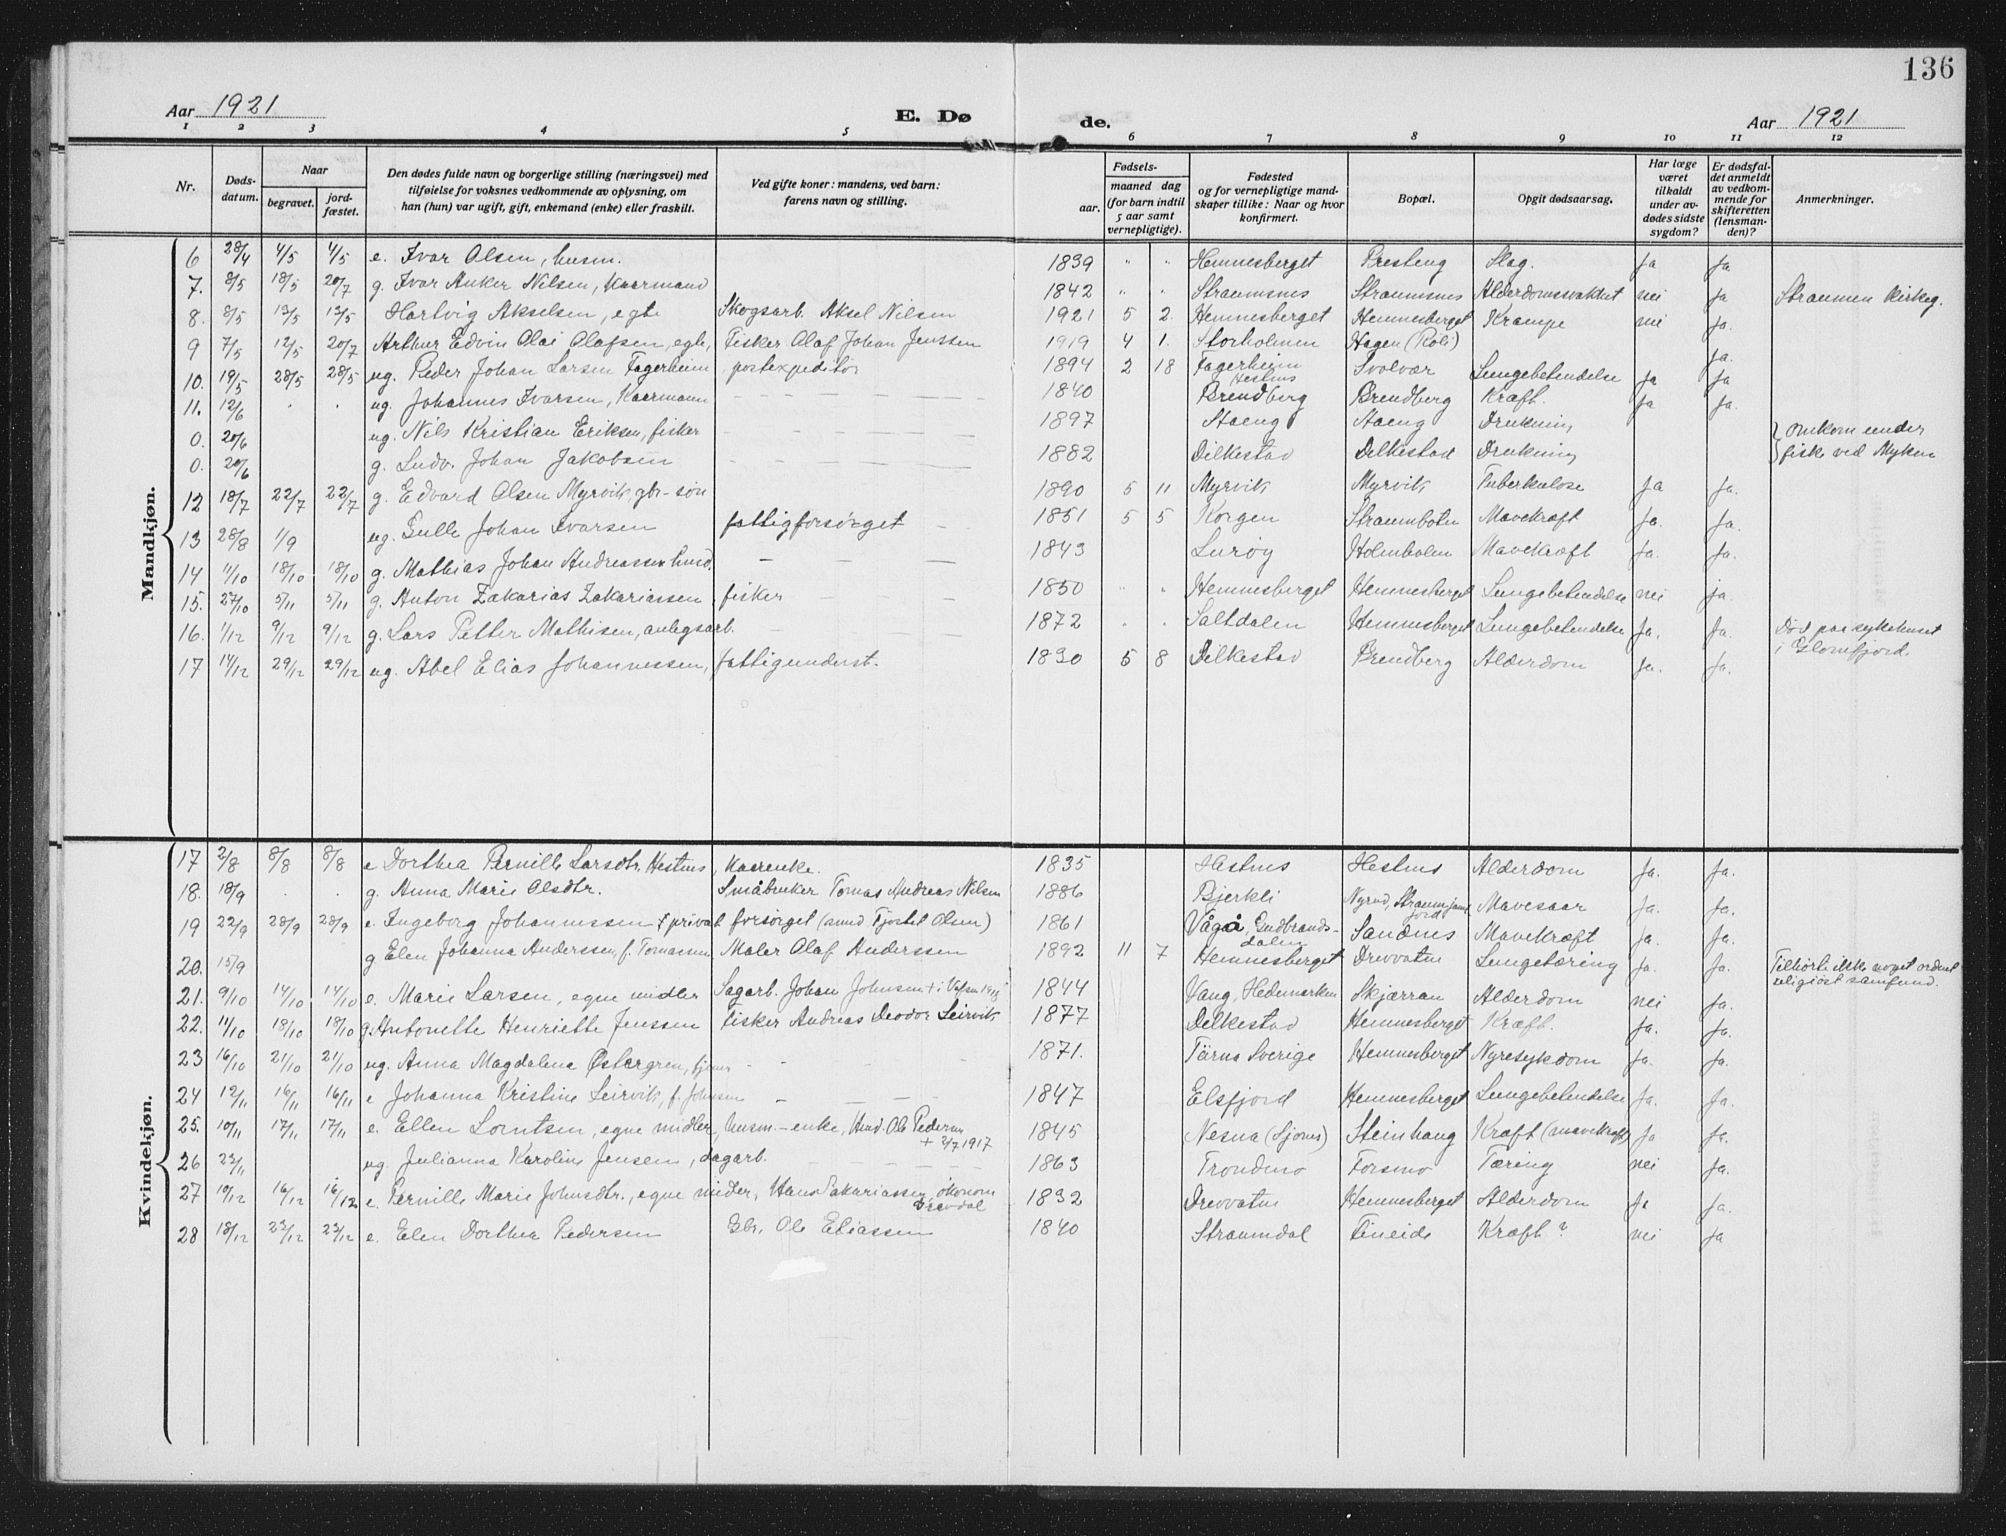 136
Aar 1921 E. Dø de. Aar 1921
1 2 3 4 5 6 7 8 9 10 11 12
Nr. Døds-datum. Naar begravet. jord-fæstet. Den dødes fulde navn og borgerlige stilling (næringsvei) med tilføielse for voksnes vedkommende av oplysning, om han (hun) var ugift, gift, enkemand (enke) eller fraskilt. Ved gifte koner: mandens, ved barn: farens navn og stilling. Fødsels- aar. maaned dag (for barn indtil 5 aar samt vernepligtige). Fødested og for vernepligtige mand-skaper tillike: Naar og hvor konfirmert. Bopæl. Opgit dødsaarsag. Har læge været tilkaldt under av-dødes sidste sygdom? Er dødsfal-det anmeldt av vedkom-mende for skifteretten (lensman-den)? Anmerkninger.
Mandkjøn.
6 28/4 4/5 4/5 e. Ivar Olsen, husm. 1839 " " Hemnesberget Presteng Slag. Ja Ja
7. 8/5 18/5 20/7 g. Ivar Anker Nilsen, Kaarmand 1842 " " Straumsnes Straumsnes Alderdomssvakhet nei Ja Straumen kirkeg.
8. 8/5 13/5 13/5 Hartvig Akselsen, egte Skogsarb. Aksel Nilsen 1921 5 2. Hemnesberget Hemnesberget Krampe nei Ja.
9 7/5 12/5 20/7 Arthur Edvin Olai Olafsen, egte, Fisker Olaf Johan Jenssen 1919 4 1. Storholmen Hagen (Roli) Ja.
10. 19/5 28/5 28/5 ug. Peder Johan Larsen Fagerheim postexpeditør 1894 2 18 Fagerheim Hestnes Svolvær Lungebetendelse Ja Ja
11. 12/6 . . ug. Johannes Ivarsen, Kaarmann 1840 Brendberg Brendberg Kræft. Ja Ja.
0. 20/6 ug. Nils Kristian Eriksen, fisker 1897 Aaeng Aaeng Drukning } omkom under
0. 20/6 g. Ludv. Johan Jakobsen 1882 Dilkestad Dilkestad Drukning fiske ved Myken
12 18/7 22/7 22/7 g. Edvard Olsen Myrvik, gbr-søn 1890 5 11 Myrvik Myrvik Tuberkulose Ja Ja.
13 28/8 1/9 ug. Gulle Johan Ivarsen fattigforsørget 1851 5 5 Korgen Straumbotn Mavekræft Ja. Ja.
14 11/10 18/10 18/10 g. Mathias Johan Andreassen husd. 1843 Lurøy Holmholm Mavekræft Ja. Ja.
15. 27/10 5/11 5/11 g. Anton Zakarias Zakariassen fisker 1850 " " Hemnesberget Hemnesberget Lungebetendelse nei ja.
16. 1/12 9/12 9/12 g. Lars Petter Mathisen, anlegsarb. 1872 " " Saltdalen Hemnesberget Lungebetendelse Ja. Ja. Død paa sykehuset i Glomfjord.
17 14/12 29/12 29/12 ug. Abel Elias Johannessen, fattigunderst. 1830 5 8 Dilkestad Brendberg Alderdom Ja. Ja.
Kvindekjøn.
17 2/8 8/8 8/8 e Dorthea Pernille Larsdtr. Hestnes, Kaarenke. 1835 Hestnes Hestnes Alderdom Ja. Ja.
18. 18/9 . . g. Anna Marie Olsdtr. Småbruker Tomas Andreas Nilsen 1886 Bjerkli Nyrud, Mavesaar Ja. Ja.
19 22/9 28/9 28/9 e. Ingeborg Johannessen privat forsørget (Tjostel Olsen) 1861 Vågå, Gudbrands-dalen Sandnes Mavekræft Ja. Ja.
20. 15/9 g Elen Johanna Anderssen, f. Tomassen Maler Olaf Anderssen 1892 11 7 Hemnesberget Drevvatne Lungetæring Ja. Ja. Tilhørte ikke noget ordnet religiøst samfund.
21. 9/10 14/10 14/10 e. Marie Larsen, egne midler Sagarb. Johan Johnsen + i Vefsn 1915 1844 Vang, Hedemarken Skjærran Alderdom nei Ja.
22. 11/10 18/10 18/10 g. Antonette Henriette Jenssen fisker Andreas Deodor Leirvik 1877 Dilkestad Hemnesberget Kræft. Ja. Ja.
23 16/10 21/10 21/10 ug. Anna Magdalena Østergren, tjener 1871. Tärna Sverige Hemnesberget Nyresykdom Ja. Ja.
24 12/11 16/11 16/11 e Johanna Kristine Leirvik, f. Johnsen 1847 Elsfjord Hemnesberget Lungebetendelse Ja. Ja.
25. 10/11 17/11 17/11 e. Ellen Lorntsen, egne midler, husm.-enke, Husd. Ole Pedersen + 2/7 1917 1845 Nesna (Sjona) Steinhaug Kræft (mavekræft) Ja Ja.
26 23/11 ug. Julianna Karoline Jensen, dagarb. 1863 Trondmo Forsmo Tæring nei Ja.
27 10/12 16/12 16/12 e. Pernille Marie Johnsdtr., egne midler, Hans Zakariassen, økonom Drevdal 1832 Drevvatne Hemnesberget Alderdom Ja Ja.
28 18/12 23/12 23/12 e. Elen Dorthea Pedersen Gbr. Ole Eliassen 1840 Straumdal Fineide Kræft? nei Ja